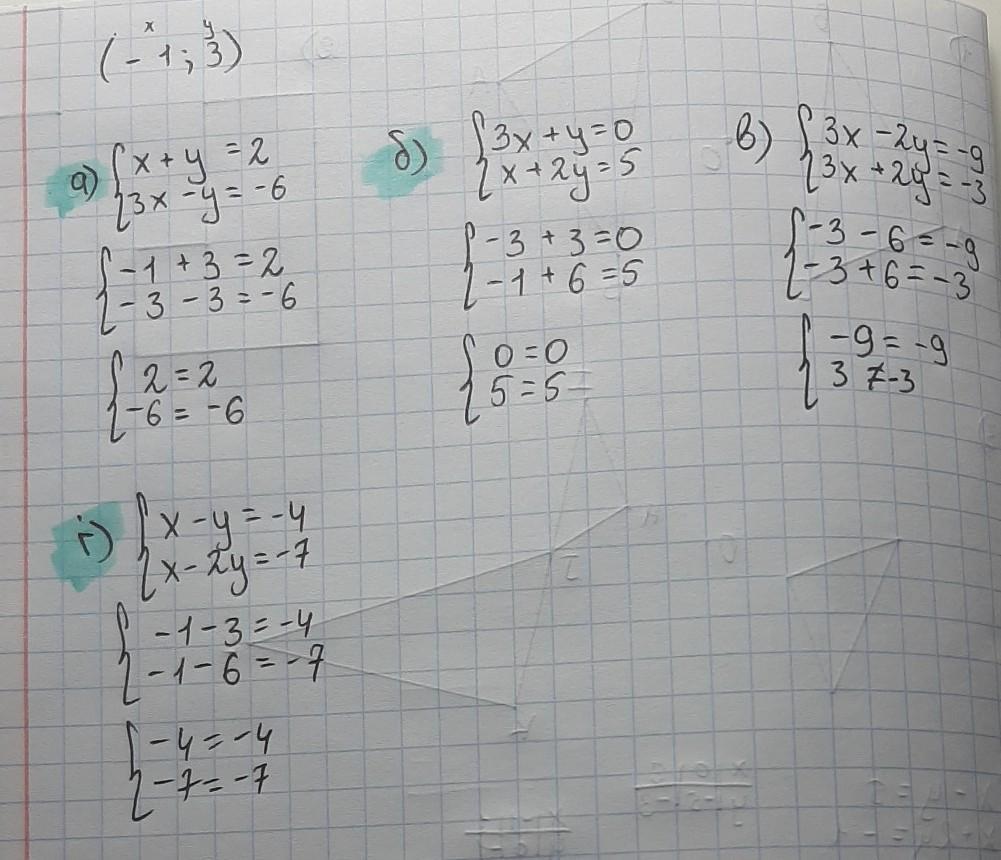 x y
(-1; 3)
а) { x + y = 2
3x - y = -6
{ -1 + 3 = 2
-3 - 3 = -6
{ 2 = 2
-6 = -6
б) { 3x + y = 0
x + 2y = 5
{ -3 + 3 = 0
-1 + 6 = 5
{ 0 = 0
5 = 5
в) { 3x - 2y = -9
3x + 2y = -3
{ -3 - 6 = -9
-3 + 6 = -3
{ -9 = -9
3 ≠ -3
г) { x - y = -4
x - 2y = -7
{ -1 - 3 = -4
-1 - 6 = -7
{ -4 = -4
-7 = -7